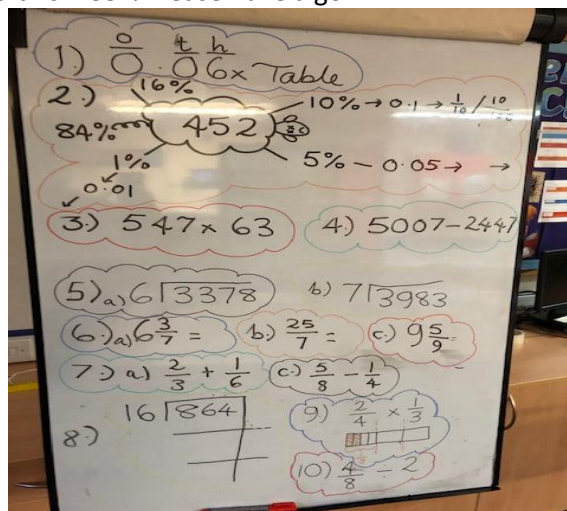 o t h
1.) 0.06x Table
2.) 16% 10% → 0.1 → 1/10 / 10/100
84% 452
1% 5% - 0.05 → →
0.01
3.) 547 x 63 4.) 5007-2447
5.) a) 6⟌3378 b) 7⟌3983
6.) a) 6 3/7 = b.) 25/7 = c.) 9 5/9
7.) a) 2/3 + 1/6 c.) 5/8 - 1/4
8.) 16⟌864 9) 2/4 x 1/3
10) 4/8 ÷ 2